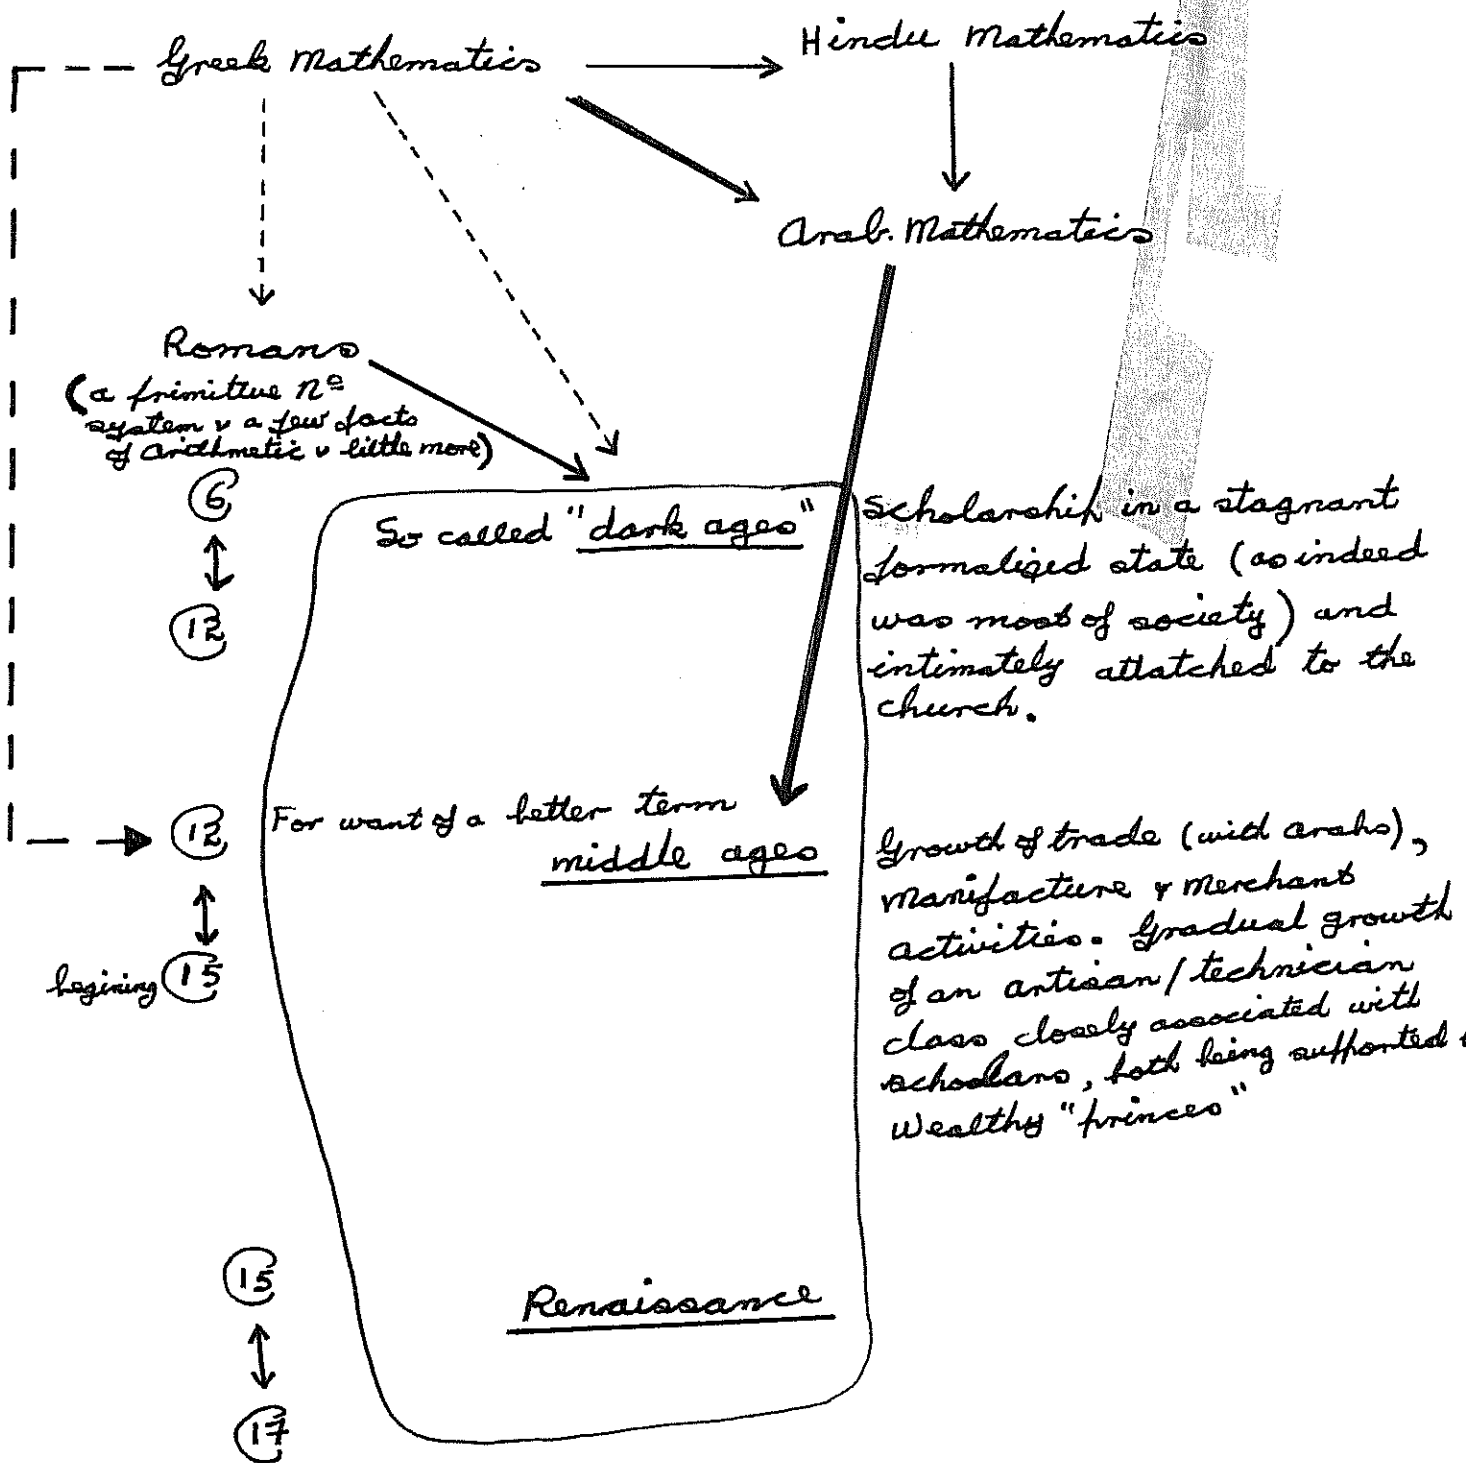 Greek Mathematics
Hindu Mathematics
Arab. Mathematics
Romans
(a primitive nº
system & a few facts
of arithmetic & little more)
6
12
So called "dark ages"
Scholarship in a stagnant
formalized state (as indeed
was most of society) and
intimately attatched to the
church.
12
begining 15
For want of a better term
middle ages
Growth of trade (with arabs),
manifacture & merchant
activities. Gradual growth
of an artisan/technician
class closely associated with
schoolars, both being supported
wealthy "princes"
15
17
Renaissance